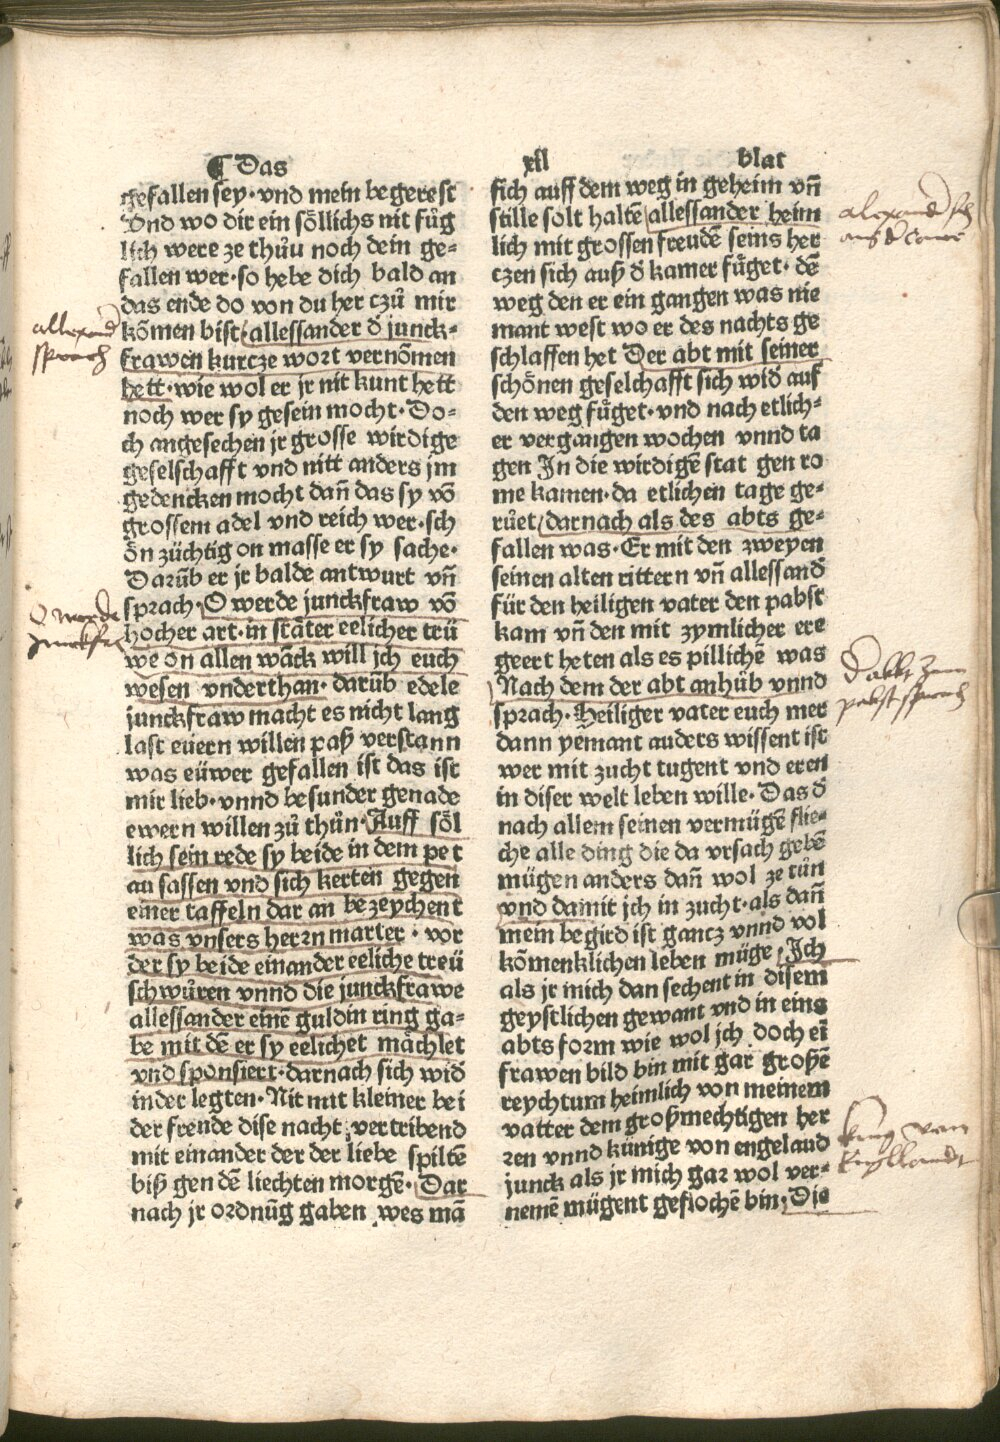 ¶ Das xil blat
gefallen sey·vnd mein begerest
Vnd wo dir ein söllichs nit fůg
lich were ze thůu noch dein ge-
fallen wer·so hebe dich bald an
das ende do von du her czů mir
kōmen bist/allessander d̄ junck-
frawen kurcze wort vernōmen
hett·wie wol er jr nit kunt hett
noch wer sy gesein mocht·Do-
ch angesechen jr grosse wirdige
geselschafft vnd nitt anders jm
gedencken mocht dañ das sy vō
grossem adel vnd reich wer·sch
ön züchtig on masse er sy sache·
Darūb er jr balde antwurt vñ
sprach·O werde junckfraw vō
hocher art·in stäter eelicher trü
we on allen wāck will jch euch
wesen vnderthan·darūb edele
junckfraw macht es nicht lang
last euern willen paß verstann
was eüwer gefallen ist das ist
mir lieb·vnnd besunder genade
ewern willen zů thůn·Auff söl
lich sein rede sy beide in dem pet
au sassen vnd sich kerten gegen
einer taffeln dar an bezeychent
was vnsers herrn marter·vor
der sy beide einander eeliche treü
schwůren vnnd die junckfrawe
allessander einē guldin ring ga-
be mit dē er sy eelichet mächlet
vnd sponsiert·darnach sich wid̄
inder legten·Nit mit kleiner bei
der freude dise nacht vertribend
mit einander der der liebe spiltē
biß gen dē liechten morgē·Dar
nach jr ordnūg gaben wes mā
sich auff dem weg in geheim vñ
stille solt haltē/allessander heim
lich mit grossen freudē seins her
czen sich auß d̄ kamer fůget·dē
weg den er ein gangen was nie
mant west wo er des nachts ge
schlaffen het Der abt mit seiner
schönen geselchafft sich wid̄ auf
den weg fůget·vnd nach etlich-
er vergangen wochen vnnd ta
gen In die wirdigē stat gen ro
me kamen·da etlichen tage ge-
růet/darnach als des abts ge-
fallen was·Er mit den zweyen
seinen alten rittern vñ allessand̄
für den heiligen vater den pabst
kam vñ den mit zymlicher ere
geert heten als es pillichē was
Nach dem der abt anhůb vnnd
sprach·Heiliger vater euch mer
dann yemant auders wissent ist
wer mit zucht tugent vnd eren
in diser welt leben wille·Das d̄
nach allem seinen vermügē flie-
che alle ding die da vrsach gebē
mügen anders dañ wol ze tůn
vnd damit jch in zucht·als dañ
mein begird ist gancz vnnd vol
kōmenklichen leben müge/Ich
als jr mich dan sechent in disem
geystlichen gewant vnd in eins
abts form wie wol jch doch eī
frawen bild bin mit gar großē
reychtum heimlich von meinem
vatter dem großmechtigen her
ren vnnd künige von engeland
junck als jr mich gar wol ver-
nemē mügent geflochē bin·Die
allexand̄
sprach
O werde
junckfra
d̄ abbt zum
pabst sprach
kung von